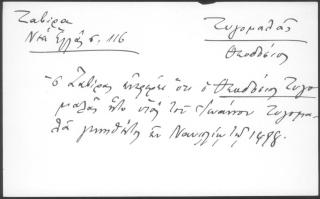 Ζαβίρα
Νέα Ἑλλάς σ. 116
Ζυγομαλᾶς
Θεοδόσιος
Ὁ Ζαβίρας ἀναφέρει ὅτι ὁ Θεοδόσιος Ζυγο
μαλᾶς ἦτο υἱὸς τοῦ Ἰωάννου Ζυγομα-
λᾶ γεννηθεὶς ἐν Ναυπλίῳ τῷ 1498.